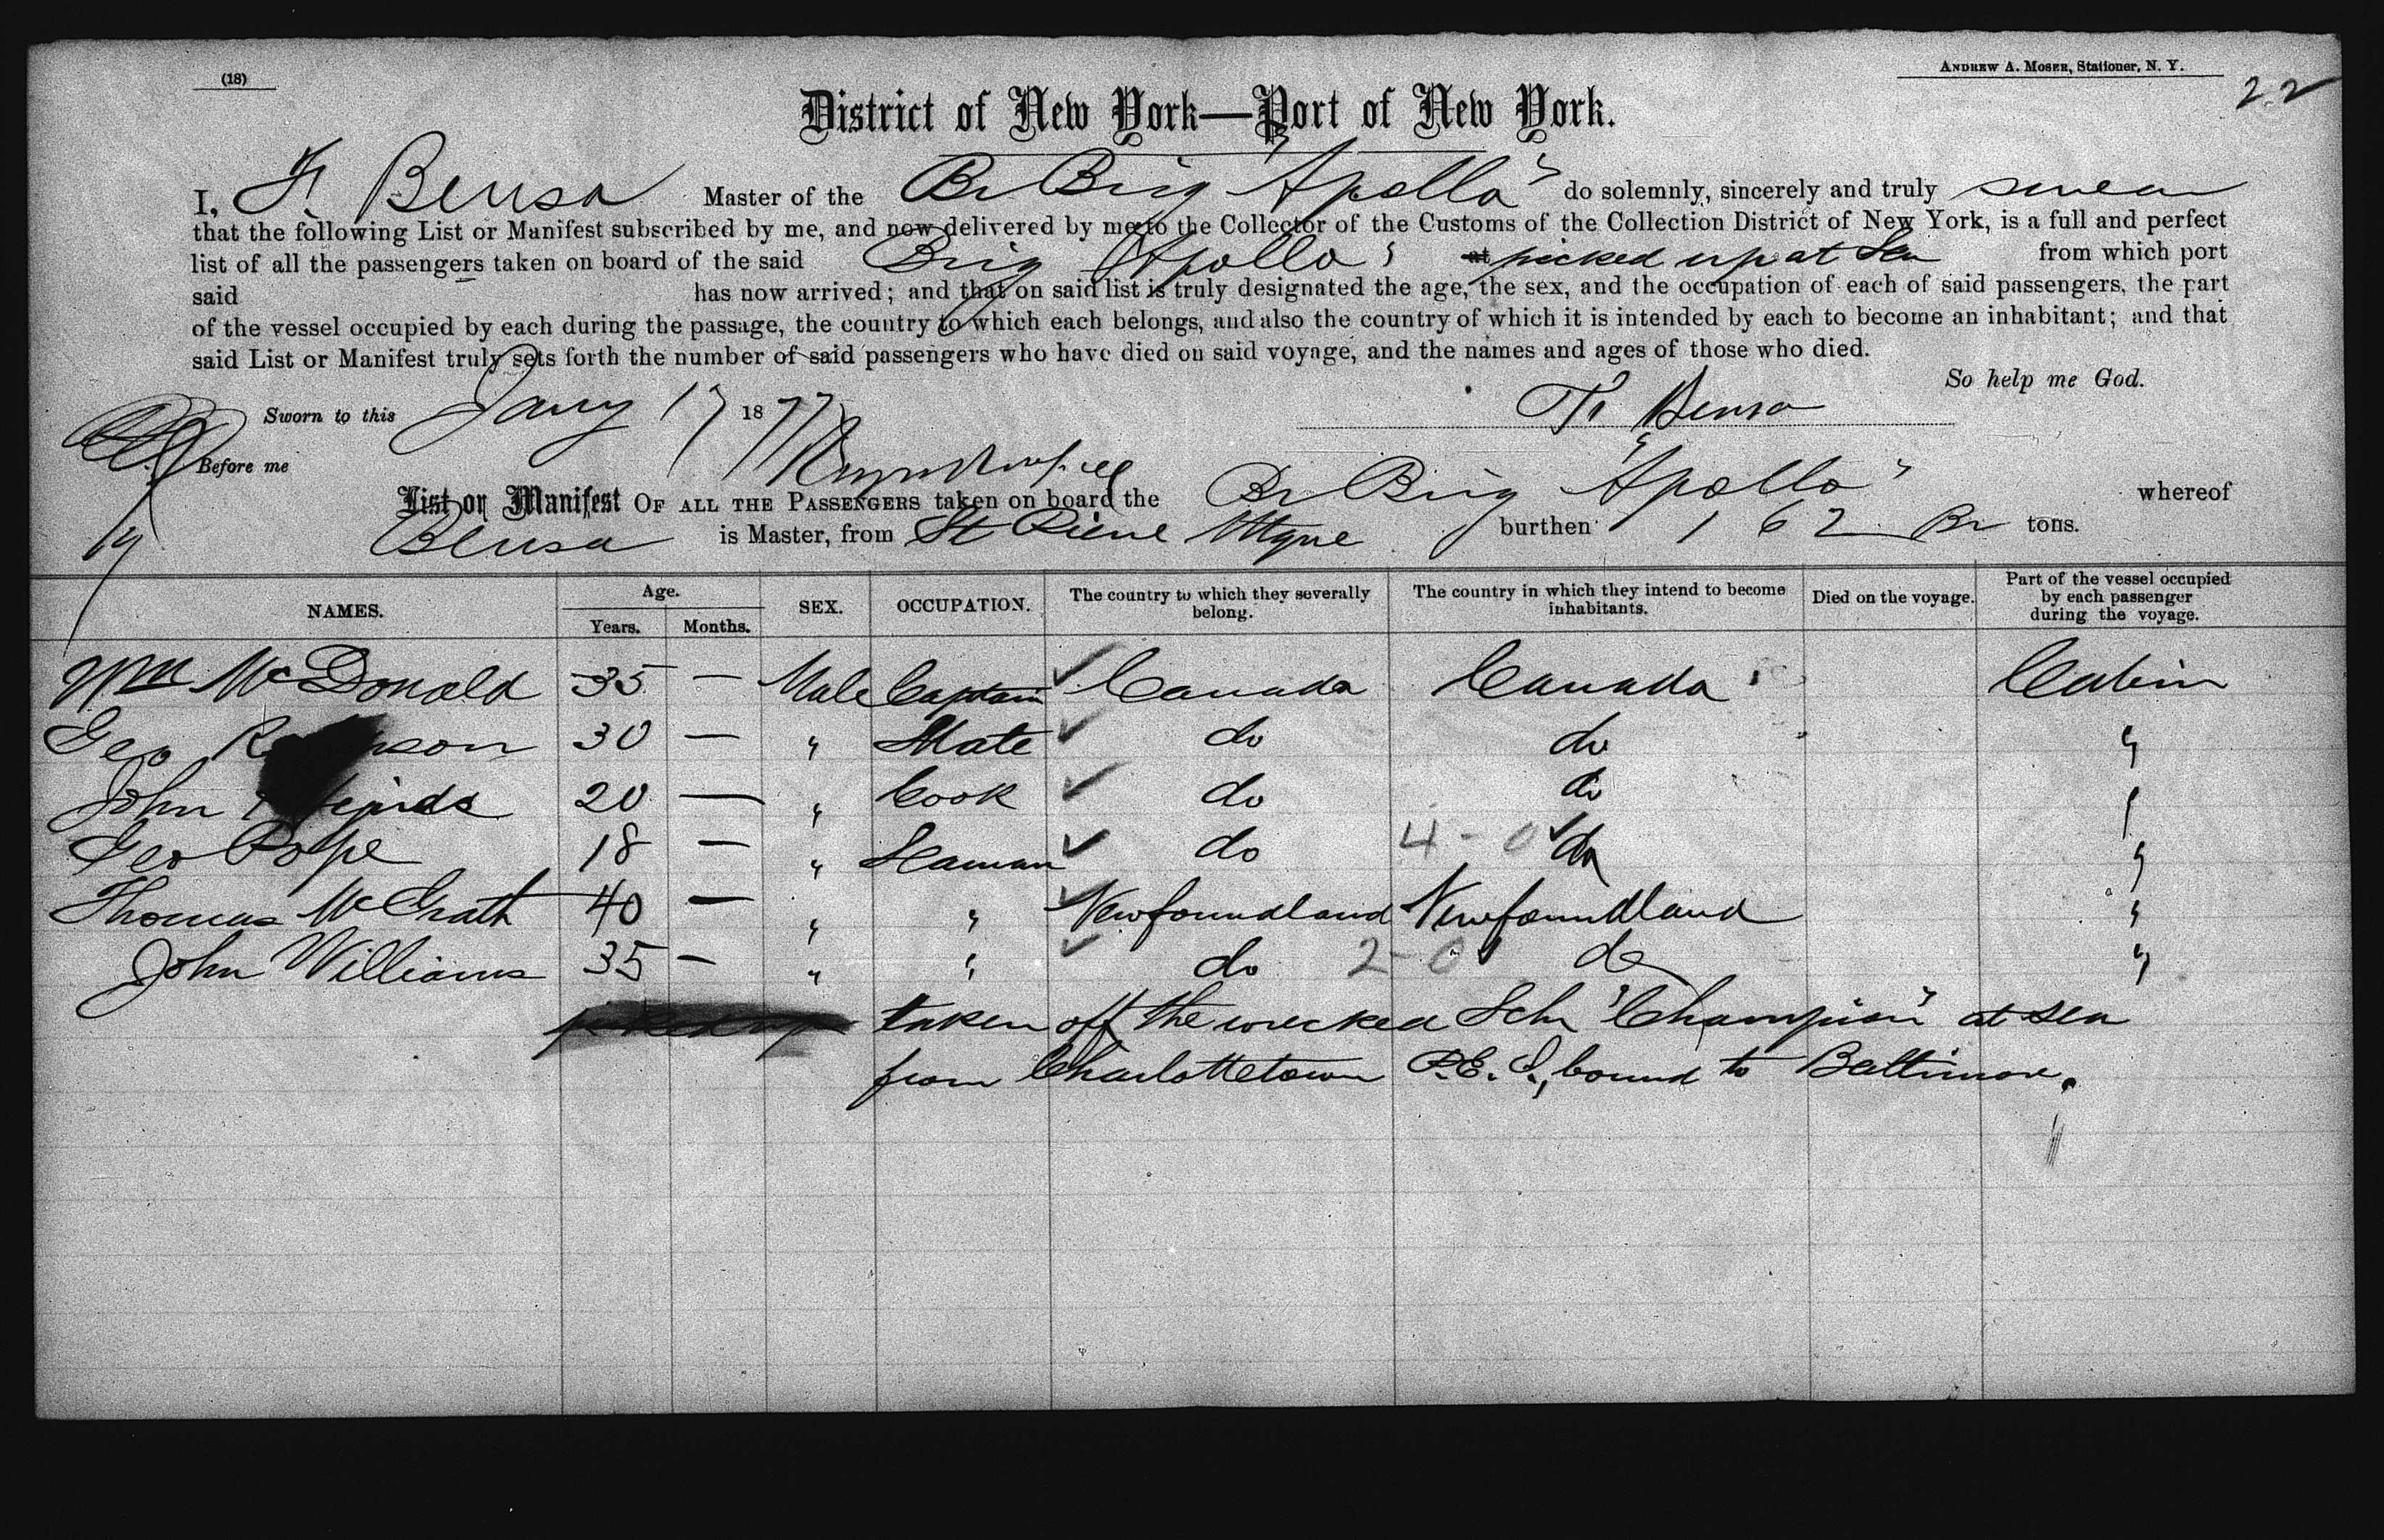 (18)
ANDREW A. MOSER, Stationer, N. Y.
22
District of New York—Port of New York.
I, Fr Bensa Master of the Br Brig "Apollo" do solemnly, sincerely and truly swear
that the following List or Manifest subscribed by me, and now delivered by me to the Collector of the Customs of the Collection District of New York, is a full and perfect
list of all the passengers taken on board of the said Brig Apollo" at picked up at Sea from which port
said has now arrived; and that on said list is truly designated the age, the sex, and the occupation of each of said passengers, the part
of the vessel occupied by each during the passage, the country to which each belongs, and also the country of which it is intended by each to become an inhabitant; and that
said List or Manifest truly sets forth the number of said passengers who have died on said voyage, and the names and ages of those who died.
So help me God.
Sworn to this Jany 17 1877 Fr Bensa
Before me
List or Manifest OF ALL THE PASSENGERS taken on board the Br Brig "Apollo" whereof
Bensa is Master, from St Pierre Mque burthen 162 Br tons.
NAMES. Age. Years. Months. SEX. OCCUPATION. The country to which they severally belong. The country in which they intend to become inhabitants. Died on the voyage. Part of the vessel occupied by each passenger during the voyage.
Wm McDonald 35 — Male Captain Canada Canada Cabin
Geo 30 — " Mate do do "
John 20 — " Cook do do "
Geo Pope 18 — " Seaman do 4-0 do "
Thomas McGrath 40 — " " Newfoundland Newfoundland "
John Williams 35 — " " do 2-0 do "
picked up taken off the wrecked Schr "Champion" at sea
from Charlottetown P.E.I., bound to Baltimore.